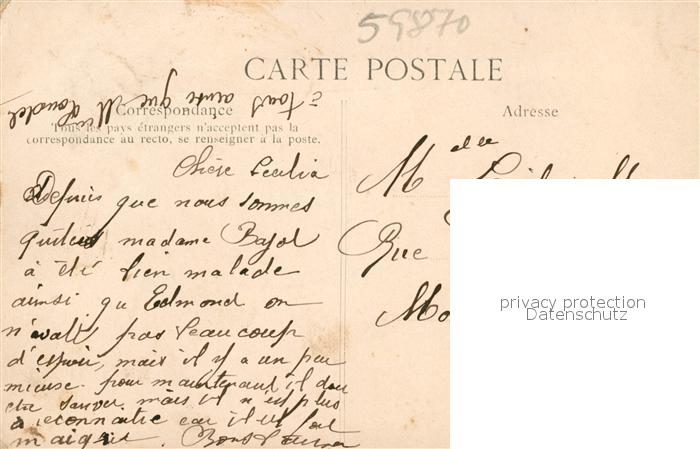 59870
CARTE POSTALE
à tous ainsi que M
Correspondance
Tous les pays étrangers n'acceptent pas la
correspondance au recto, se renseigner à la poste.
Adresse
Chère Cecilia
Depuis que nous sommes
quitées madame Bajol
à été bien malade
ainsi qu Edmond on
n'avait pas beaucoup
d'espoir, mais il y a un peu
mieuse pour maintenant il doit
etre sauver mais il n'est plus
a reconnaitre car il est
maigri. Bons
Melle
Rue
privacy protection
Datenschutz